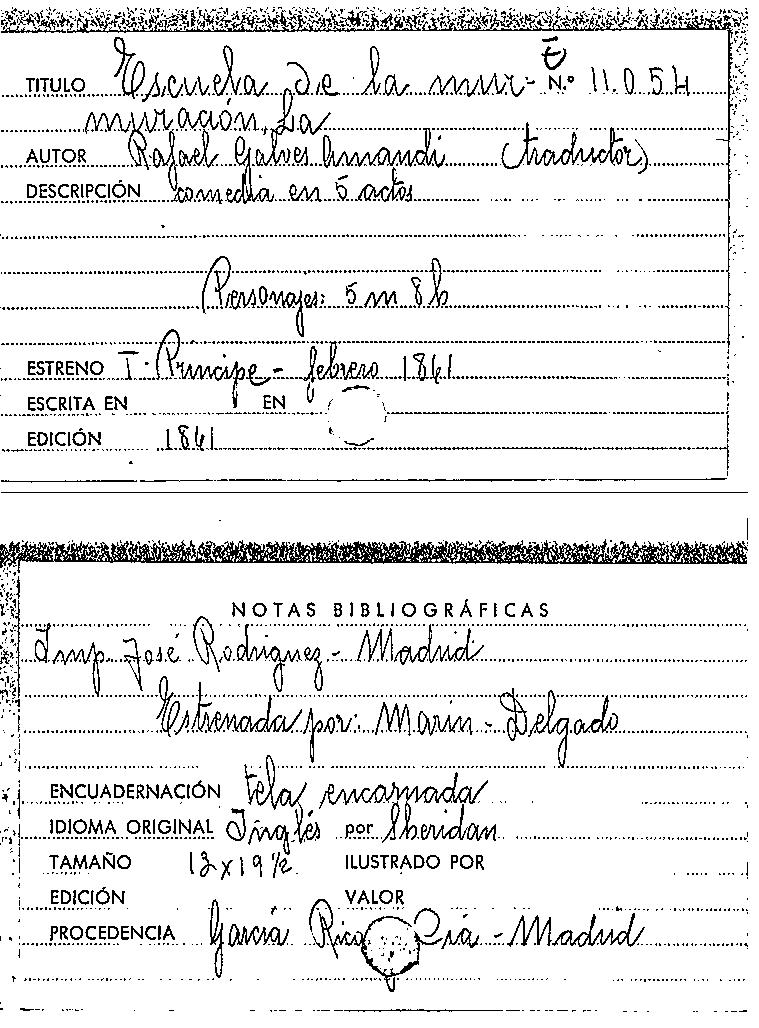 E
TITULO Escuela de la mur- N.º 11.054
muración, La
AUTOR Rafael Galves Amandi (traductor)
DESCRIPCIÓN comedia en 5 actos
Personajes: 5 m 8 h
ESTRENO T. Príncipe - febrero 1861
ESCRITA EN EN
EDICIÓN 1861
NOTAS BIBLIOGRÁFICAS
Imp. José Rodriguez - Madrid
Estrenada por: Marin - Delgado
ENCUADERNACIÓN tela encarnada
IDIOMA ORIGINAL Inglés por Sheridan
TAMAÑO 13 x 19 ½ ILUSTRADO POR
EDICIÓN VALOR
PROCEDENCIA García Rico Cía - Madrid